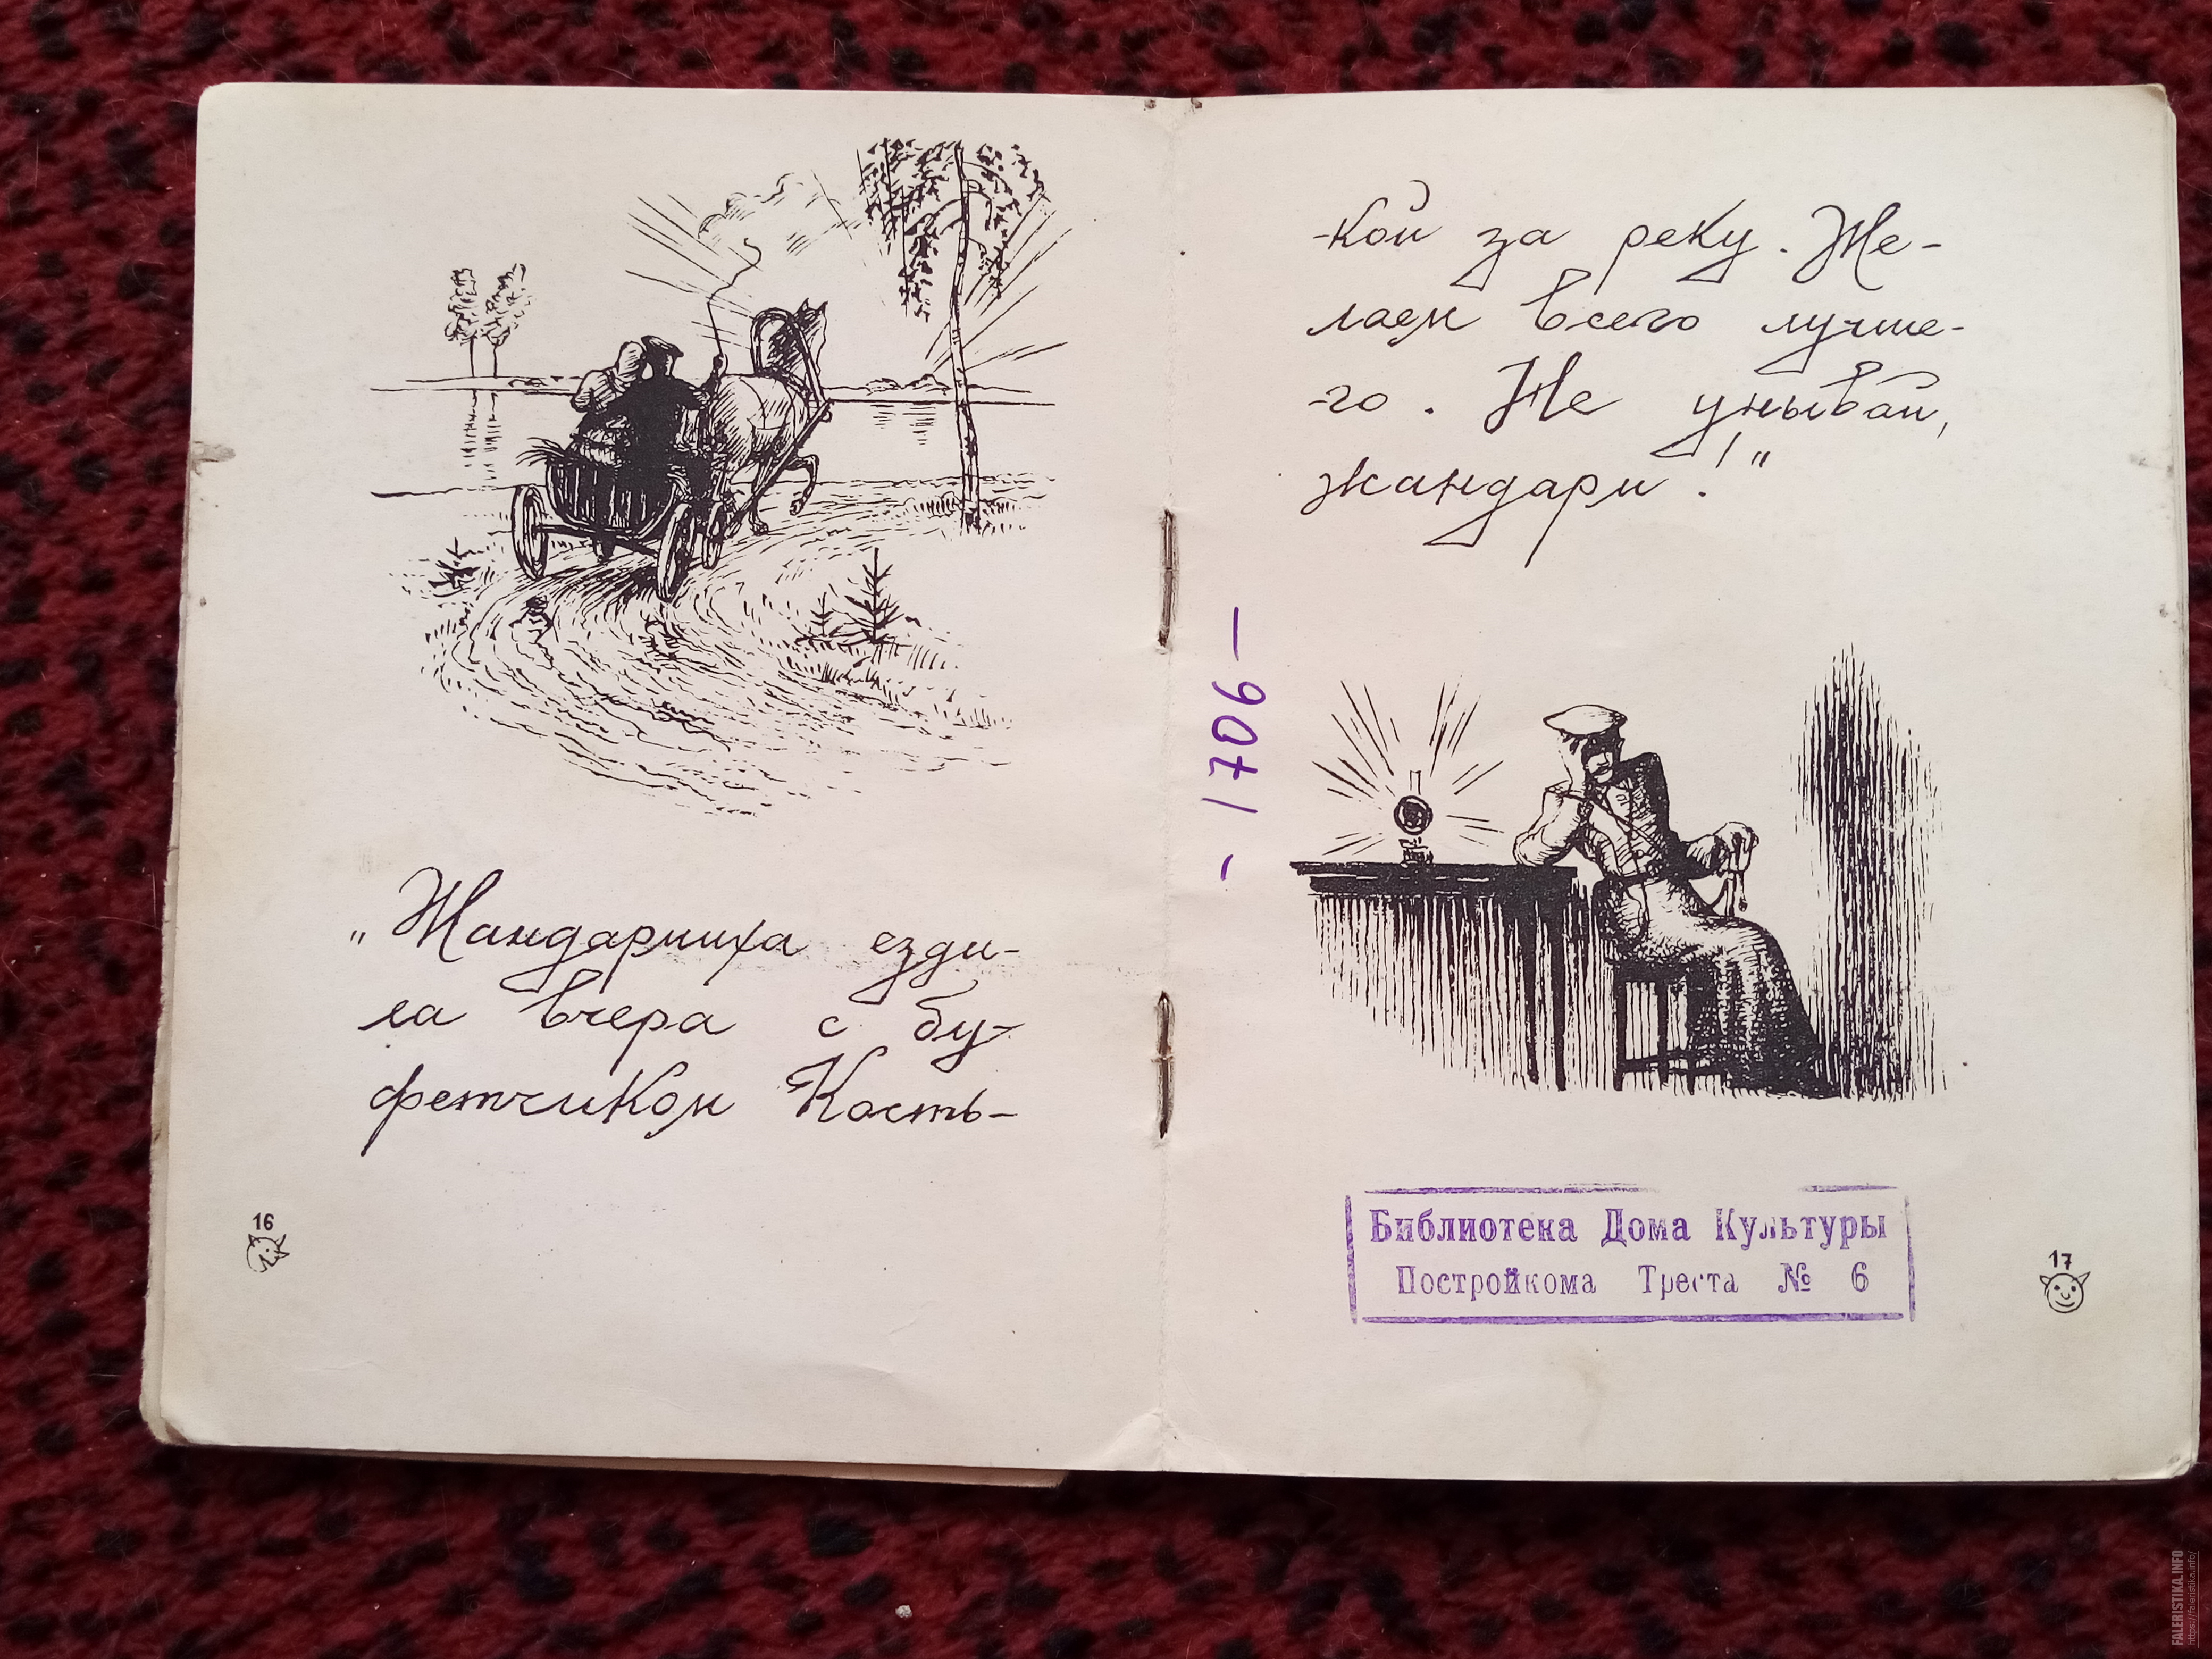 „Жандармиха езди-
ла вчера с бу-
фетчиком Кость-
16
-кой за реку. Же-
лаем всего лучше-
-го. Не унывай,
жандарм!"
- 1706 -
Библиотека Дома Культуры
Постройкома Треста № 6
17
FALERISTIKA.INFO
https://faleristika.info/